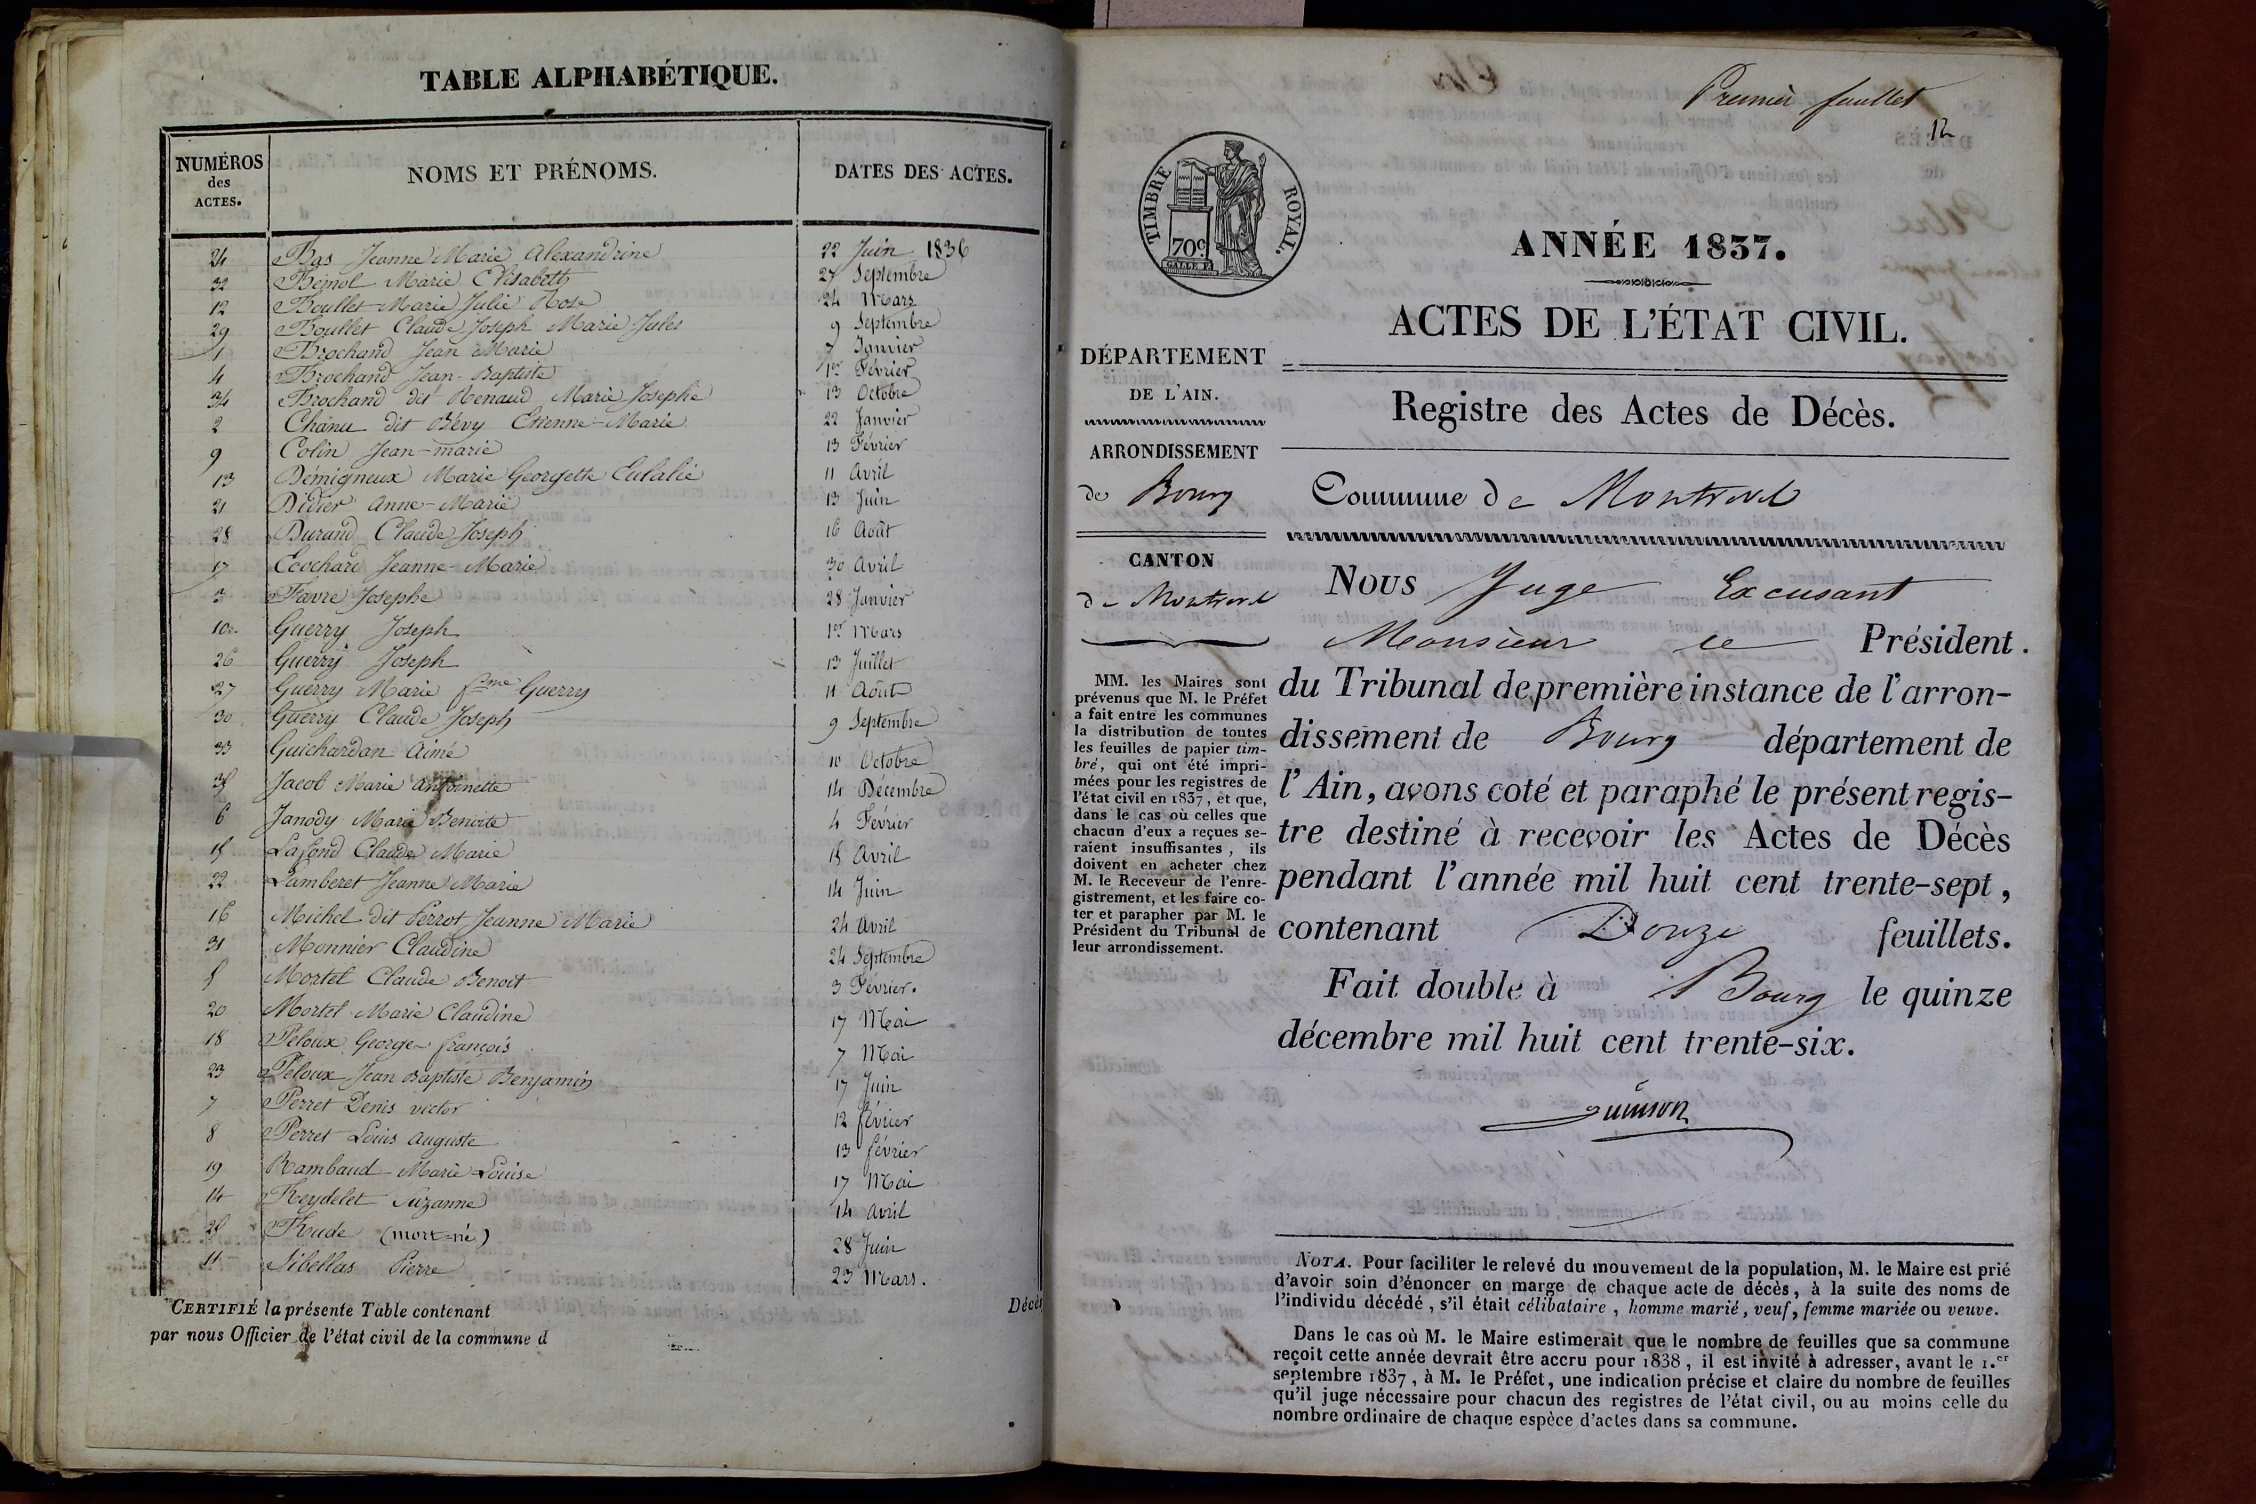 TABLE ALPHABÉTIQUE.
NUMÉROS des ACTES. NOMS ET PRÉNOMS. DATES DES ACTES.
24 Bas Jeanne Marie Alexandrine 22 Juin 1836
32 Bémol Marie Elisabeth 27 Septembre
12 Boullet Marie Julie Rose 24 Mars
29 Boullet Claude Joseph Marie Jules 9 Septembre
1 Brochand Jean Marie 7 Janvier
4 Brochand Jean-Baptiste 1er Février
34 Brochand dit Renaud Marie Josephe 13 Octobre
2 Chânu dit Bévy Etienne-Marie 22 Janvier
9 Colin Jean-marie 13 Février
13 Démigneux Marie Georgette Eulalie 11 Avril
21 Didier Anne-Marie 13 Juin
28 Durand Claude Joseph 16 Août
17 Ecochard Jeanne-Marie 30 Avril
3 Favre Josephe 28 Janvier
10 Guerry Joseph 1er Mars
26 Guerry Joseph 13 Juillet
27 Guerry Marie fme Guerry 11 Août
30 Guerry Claude Joseph 9 Septembre
33 Guichardan Aimé 10 Octobre
35 Jacob Marie Antoinette 14 Décembre
6 Janody Marie Benoite 4 Février
15 Lafond Claude Marie 15 Avril
22 Lamberet Jeanne Marie 14 Juin
16 Michel dit Perrot Jeanne Marie 24 Avril
31 Monnier Claudine 24 Septembre
5 Mortel Claude Benoit 3 Février.
20 Mortel Marie Claudine 17 Mai
18 Péloux George françois 7 Mai
23 Péloux Jean Baptiste Benjamin 17 Juin
7 Perret Denis victor 12 février
8 Perret Louis Auguste 13 février
19 Rambaud Marie Louise 17 Mai
14 Reydelet Suzanne 14 avril
25 Rude (mort-né) 28 Juin
11 Sibellas Pierre 23 Mars.
CERTIFIÉ la présente Table contenant Décès
par nous Officier de l'état civil de la commune d
Premier feuillet
12
TIMBRE ROYAL.
70c
ANNÉE 1837.
ACTES DE L'ÉTAT CIVIL.
Registre des Actes de Décès.
DÉPARTEMENT
DE L'AIN.
ARRONDISSEMENT
de Bourg
CANTON
de Montrevel
MM. les Maires sont
prévenus que M. le Préfet
a fait entre les communes
la distribution de toutes
les feuilles de papier tim-
bré, qui ont été impri-
mées pour les registres de
l'état civil en 1837, et que,
dans le cas où celles que
chacun d'eux a reçues se-
raient insuffisantes, ils
doivent en acheter chez
M. le Receveur de l'enre-
gistrement, et les faire co-
ter et parapher par M. le
Président du Tribunal de
leur arrondissement.
Commune de Montrevel
Nous Juge Excusant
Monsieur le Président.
du Tribunal de première instance de l'arron-
dissement de Bourg département de
l'Ain, avons coté et paraphé le présent regis-
tre destiné à recevoir les Actes de Décès
pendant l'année mil huit cent trente-sept,
contenant Douze feuillets.
Fait double à Bourg le quinze
décembre mil huit cent trente-six.
NOTA. Pour faciliter le relevé du mouvement de la population, M. le Maire est prié
d'avoir soin d'énoncer en marge de chaque acte de décès, à la suite des noms de
l'individu décédé, s'il était célibataire, homme marié, veuf, femme mariée ou veuve.
Dans le cas où M. le Maire estimerait que le nombre de feuilles que sa commune
reçoit cette année devrait être accru pour 1838, il est invité à adresser, avant le 1.er
septembre 1837, à M. le Préfet, une indication précise et claire du nombre de feuilles
qu'il juge nécessaire pour chacun des registres de l'état civil, ou au moins celle du
nombre ordinaire de chaque espèce d'actes dans sa commune.